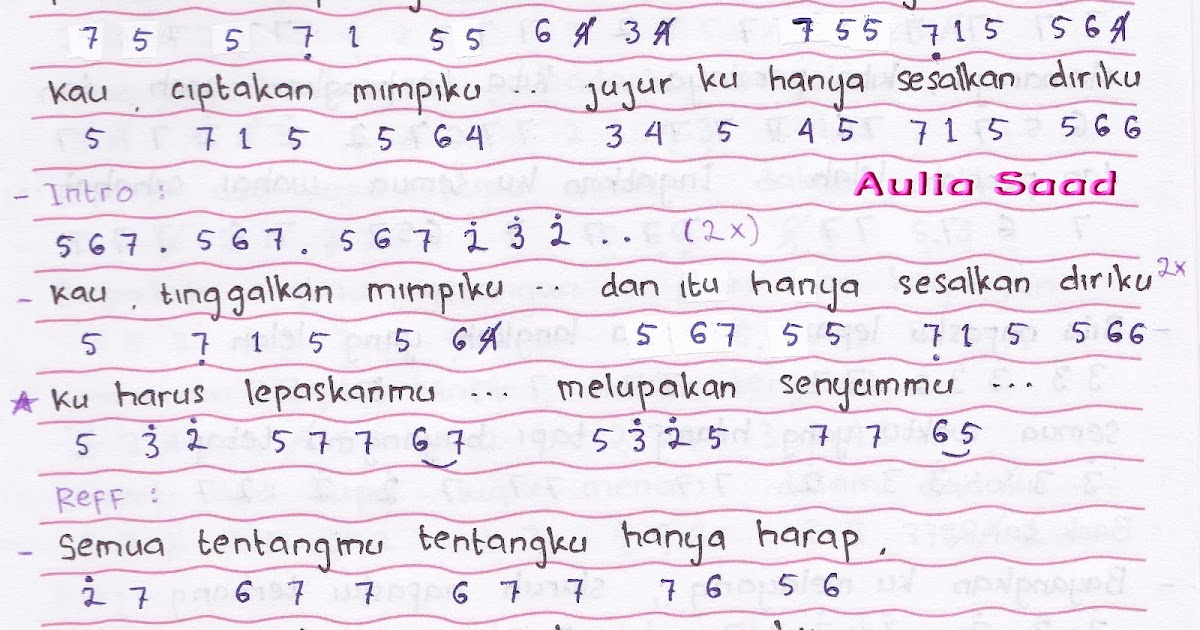 7 5 5 7̣ 1 5 5 6 4 3 4 7 5 5 7̣ 1 5 5 6 4
kau . ciptakan mimpiku .. jujur ku hanya sesalkan diriku
5 7 1 5 5 6 4 3 4 5 4 5 7 1 5 5 6 6
- Intro :
Aulia Saad
5 6 7 . 5 6 7 . 5 6 7 2̇ 3̇ 2̇ . . (2x)
- kau . tinggalkan mimpiku .. dan itu hanya sesalkan diriku 2x
5 7̣ 1 5 5 6 4 5 6 7 5 5 7̣ 1 5 5 6 6
ku harus lepaskanmu ... melupakan senyummu ...
5 3̇ 2̇ 5 7 7 6 7 5 3̇ 2̇ 5 7 7 6 5
Reff :
- semua tentangmu tentangku hanya harap .
2̇ 7 6 7 7 6 7 7 7 6 5 6